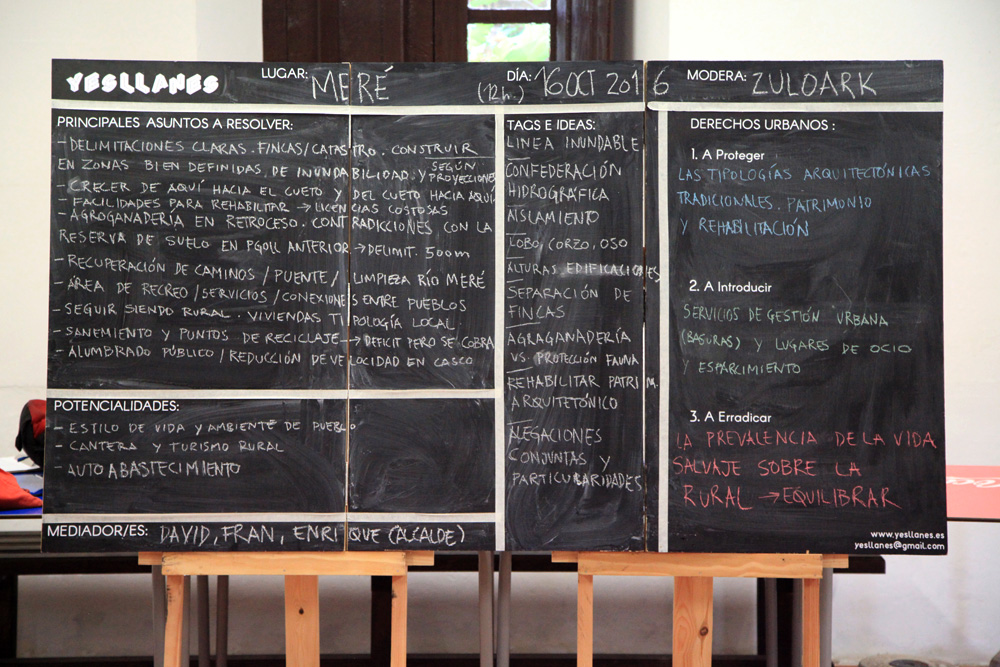 YESLLANES
LUGAR: MERÉ
DÍA: 16 OCT 2016
(12h.)
MODERA: ZULOARK
PRINCIPALES ASUNTOS A RESOLVER:
- DELIMITACIONES CLARAS. FINCAS/CATASTRO. CONSTRUIR
EN ZONAS BIEN DEFINIDAS, DE INUNDABILIDAD, Y SEGÚN PROYECCIONES
- CRECER DE AQUÍ HACIA EL CUETO Y DEL CUETO HACIA AQUÍ
- FACILIDADES PARA REHABILITAR → LICENCIAS COSTOSAS
- AGROGANADERÍA EN RETROCESO. CONTRADICCIONES CON LA
RESERVA DE SUELO EN PGOU ANTERIOR → DELIMIT. 500m
- RECUPERACIÓN DE CAMINOS / PUENTE / LIMPIEZA RÍO MERÉ
- AREA DE RECREO / SERVICIOS / CONEXIONES ENTRE PUEBLOS
- SEGUIR SIENDO RURAL. VIVIENDAS TIPOLOGÍA LOCAL
- SANEMIENTO Y PUNTOS DE RECICLAJE → DEFICIT PERO SE COBRA
- ALUMBRADO PÚBLICO / REDUCCIÓN DE VELOCIDAD EN CASCO
POTENCIALIDADES:
- ESTILO DE VIDA Y AMBIENTE DE PUEBLO
- CANTERA Y TURISMO RURAL
- AUTOABASTECIMIENTO
MEDIADOR/ES: DAVID, FRAN, ENRIQUE (ALCALDE)
TAGS E IDEAS:
LINEA INUNDABLE
CONFEDERACIÓN
HIDROGRÁFICA
AISLAMIENTO
LOBO, CORZO, OSO
ALTURAS EDIFICACIONES
SEPARACIÓN DE
FINCAS
AGRAGANADERÍA
VS. PROTECCIÓN FAUNA
REHABILITAR PATRIM.
ARQUITETÓNICO
ALEGACIONES
CONJUNTAS Y
PARTICULARIDADES
DERECHOS URBANOS :
1. A Proteger
LAS TIPOLOGÍAS ARQUITECTÓNICAS
TRADICIONALES. PATRIMONIO
Y REHABILITACIÓN
2. A Introducir
SERVICIOS DE GESTIÓN URBANA
(BASURAS) Y LUGARES DE OCIO
Y ESPARCIMIENTO
3. A Erradicar
LA PREVALENCIA DE LA VIDA
SALVAJE SOBRE LA
RURAL → EQUILIBRAR
www.yesllanes.es
yesllanes@gmail.com